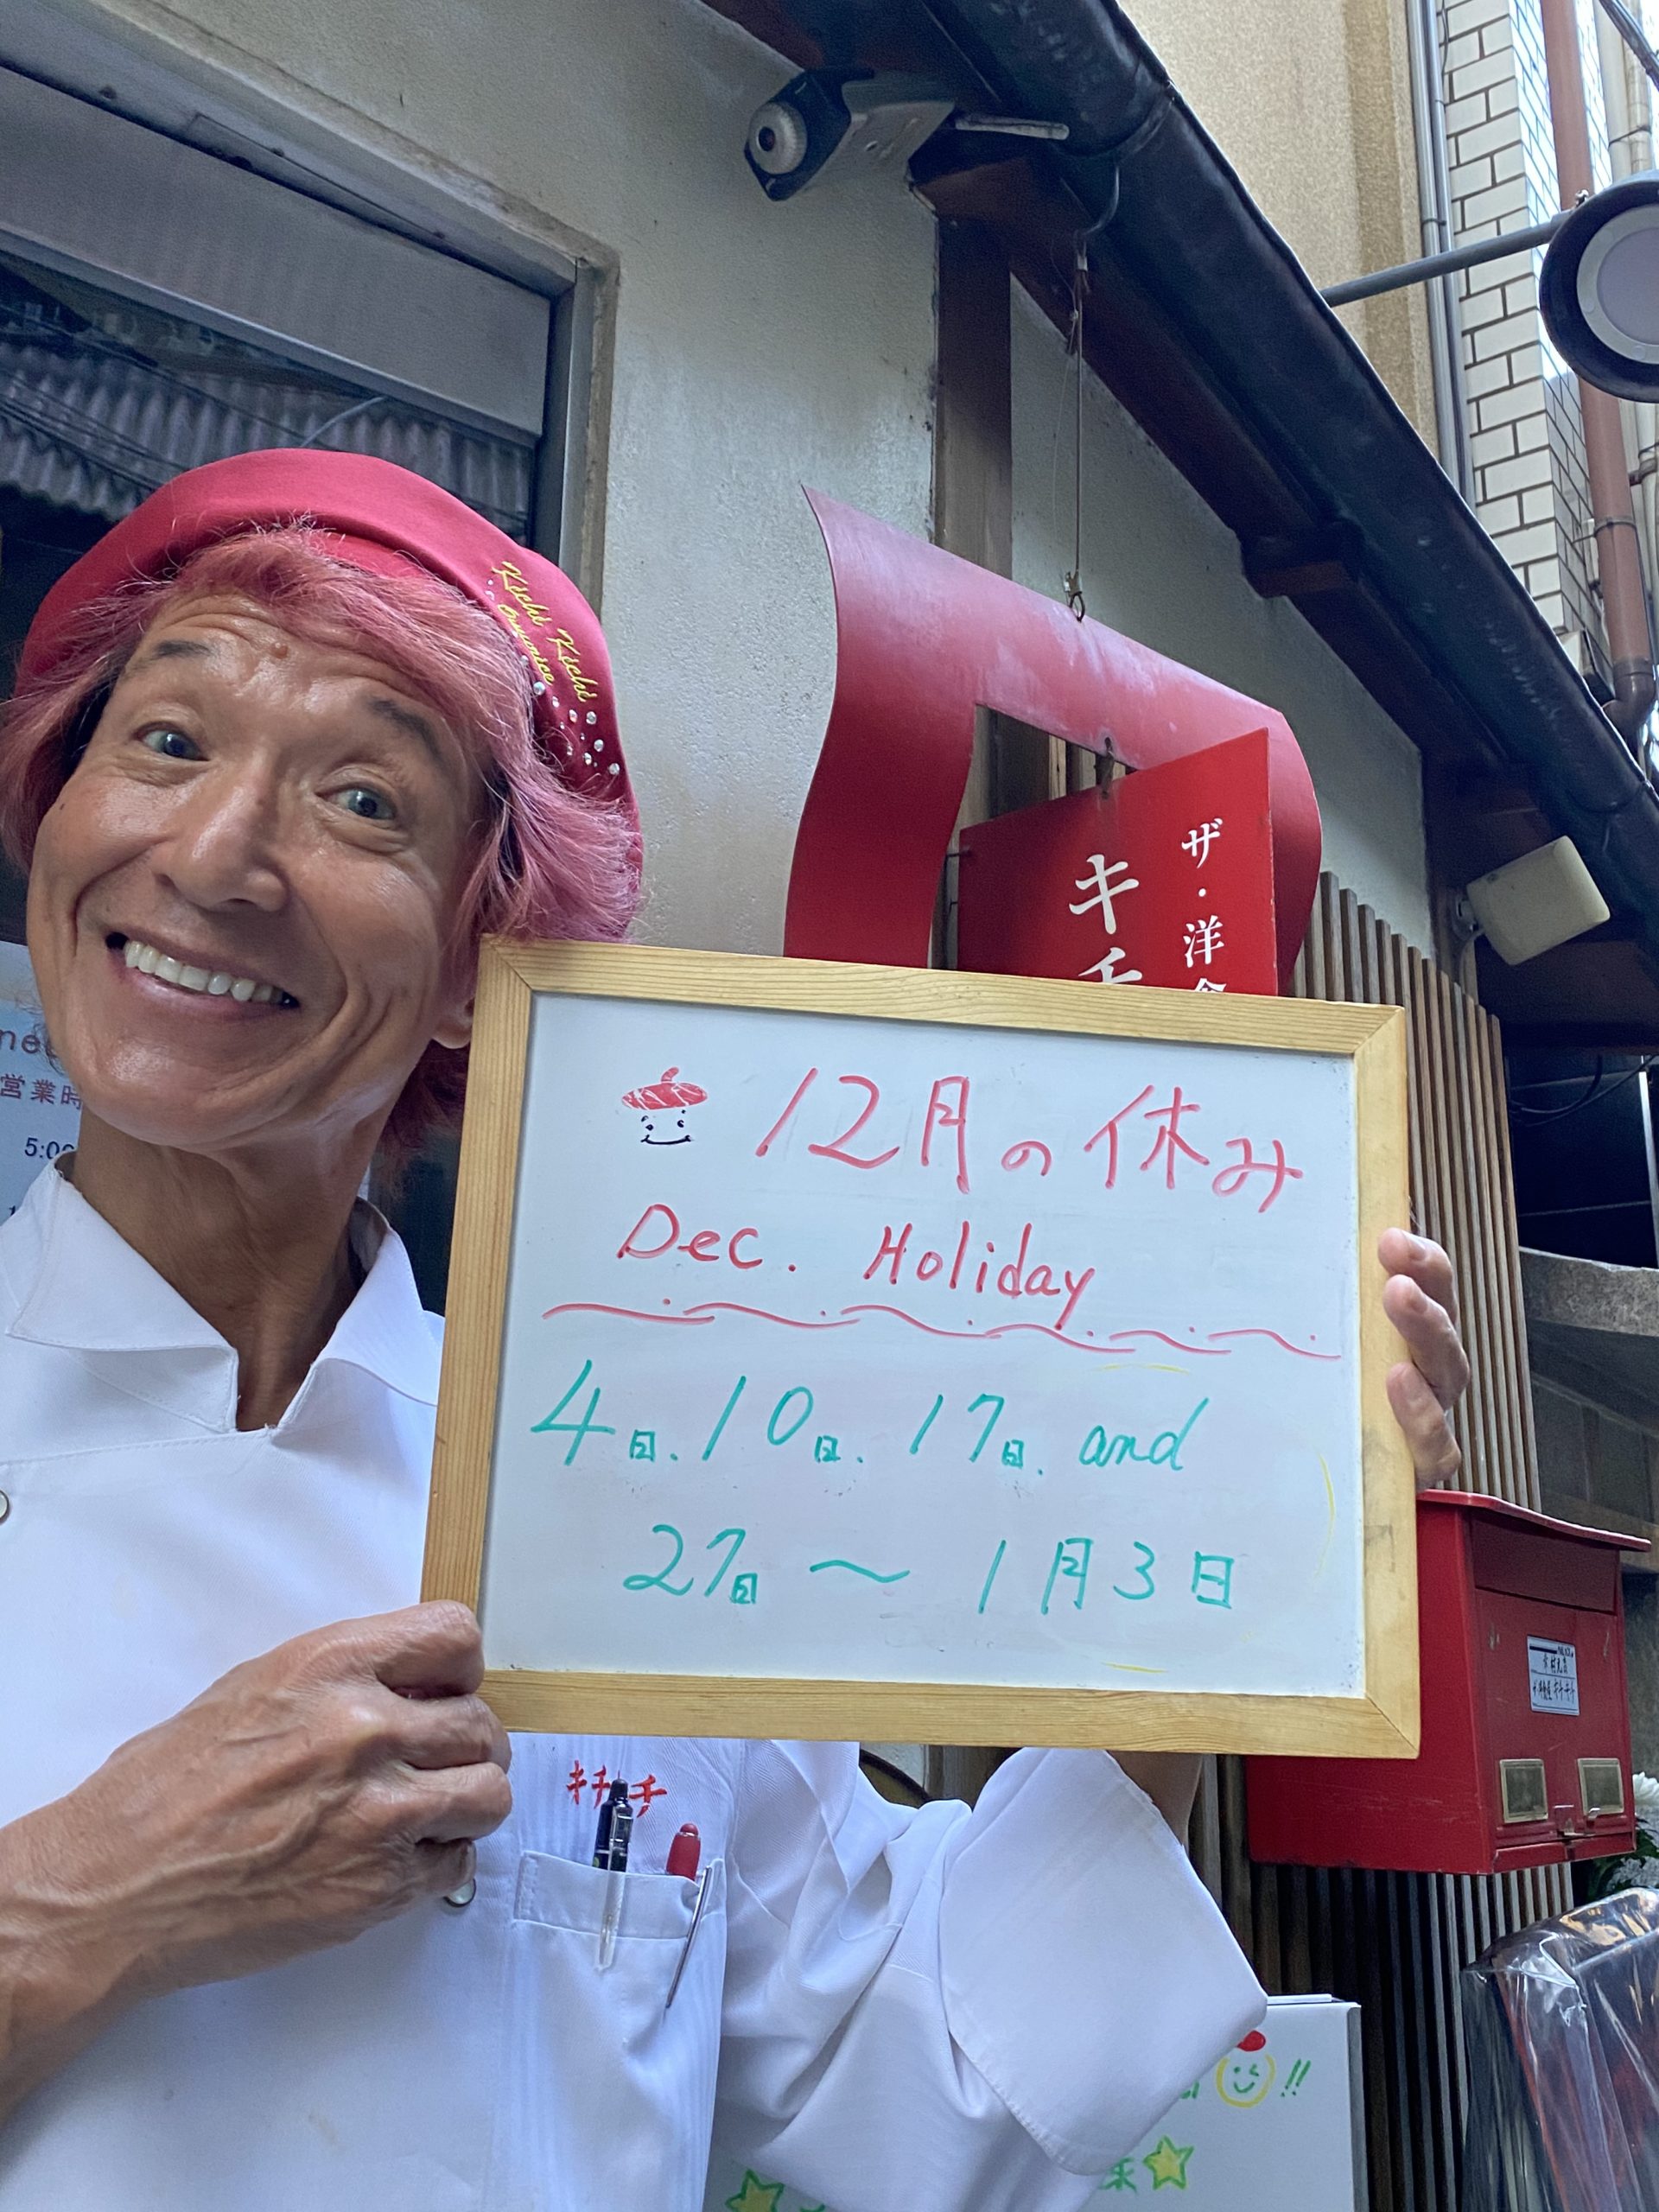 Kichi Kichi
Omurice
ザ・洋
キチ
営業時
5:00
12月の休み
Dec. Holiday
4日. 10日. 17日. and
27日 〜 1月3日
キチキチ
!!